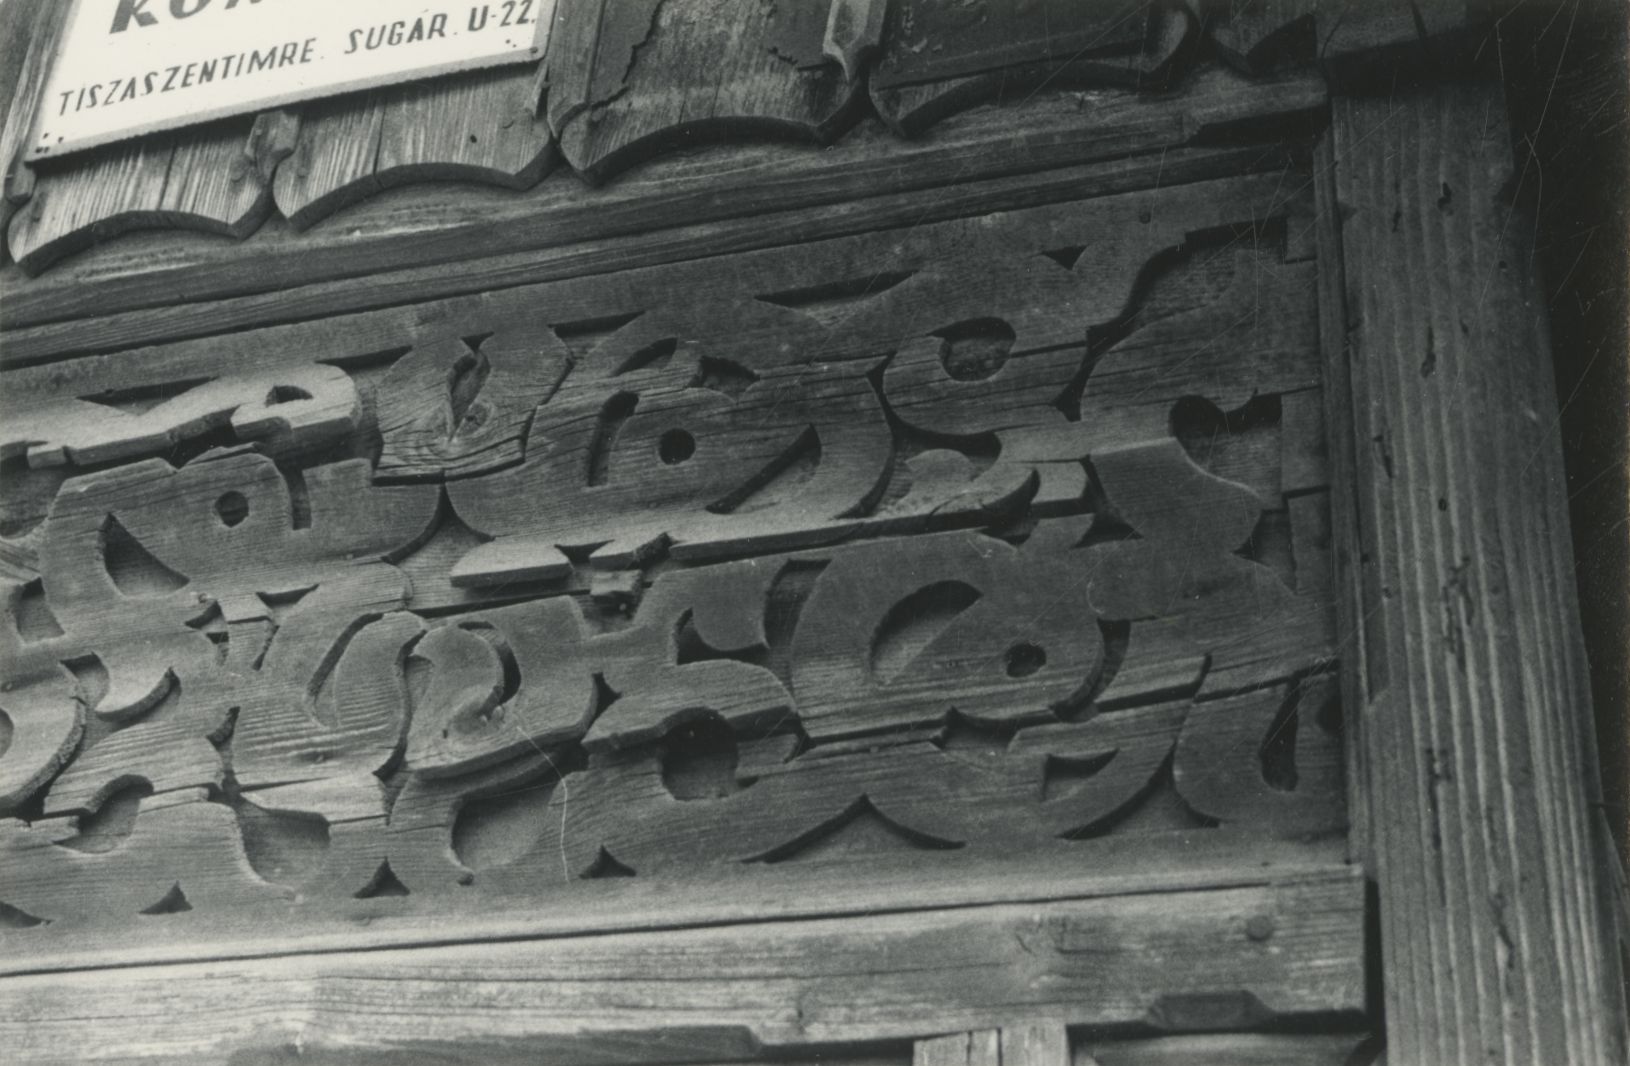 TISZASZENTIMRE. SUGÁR. U-22.